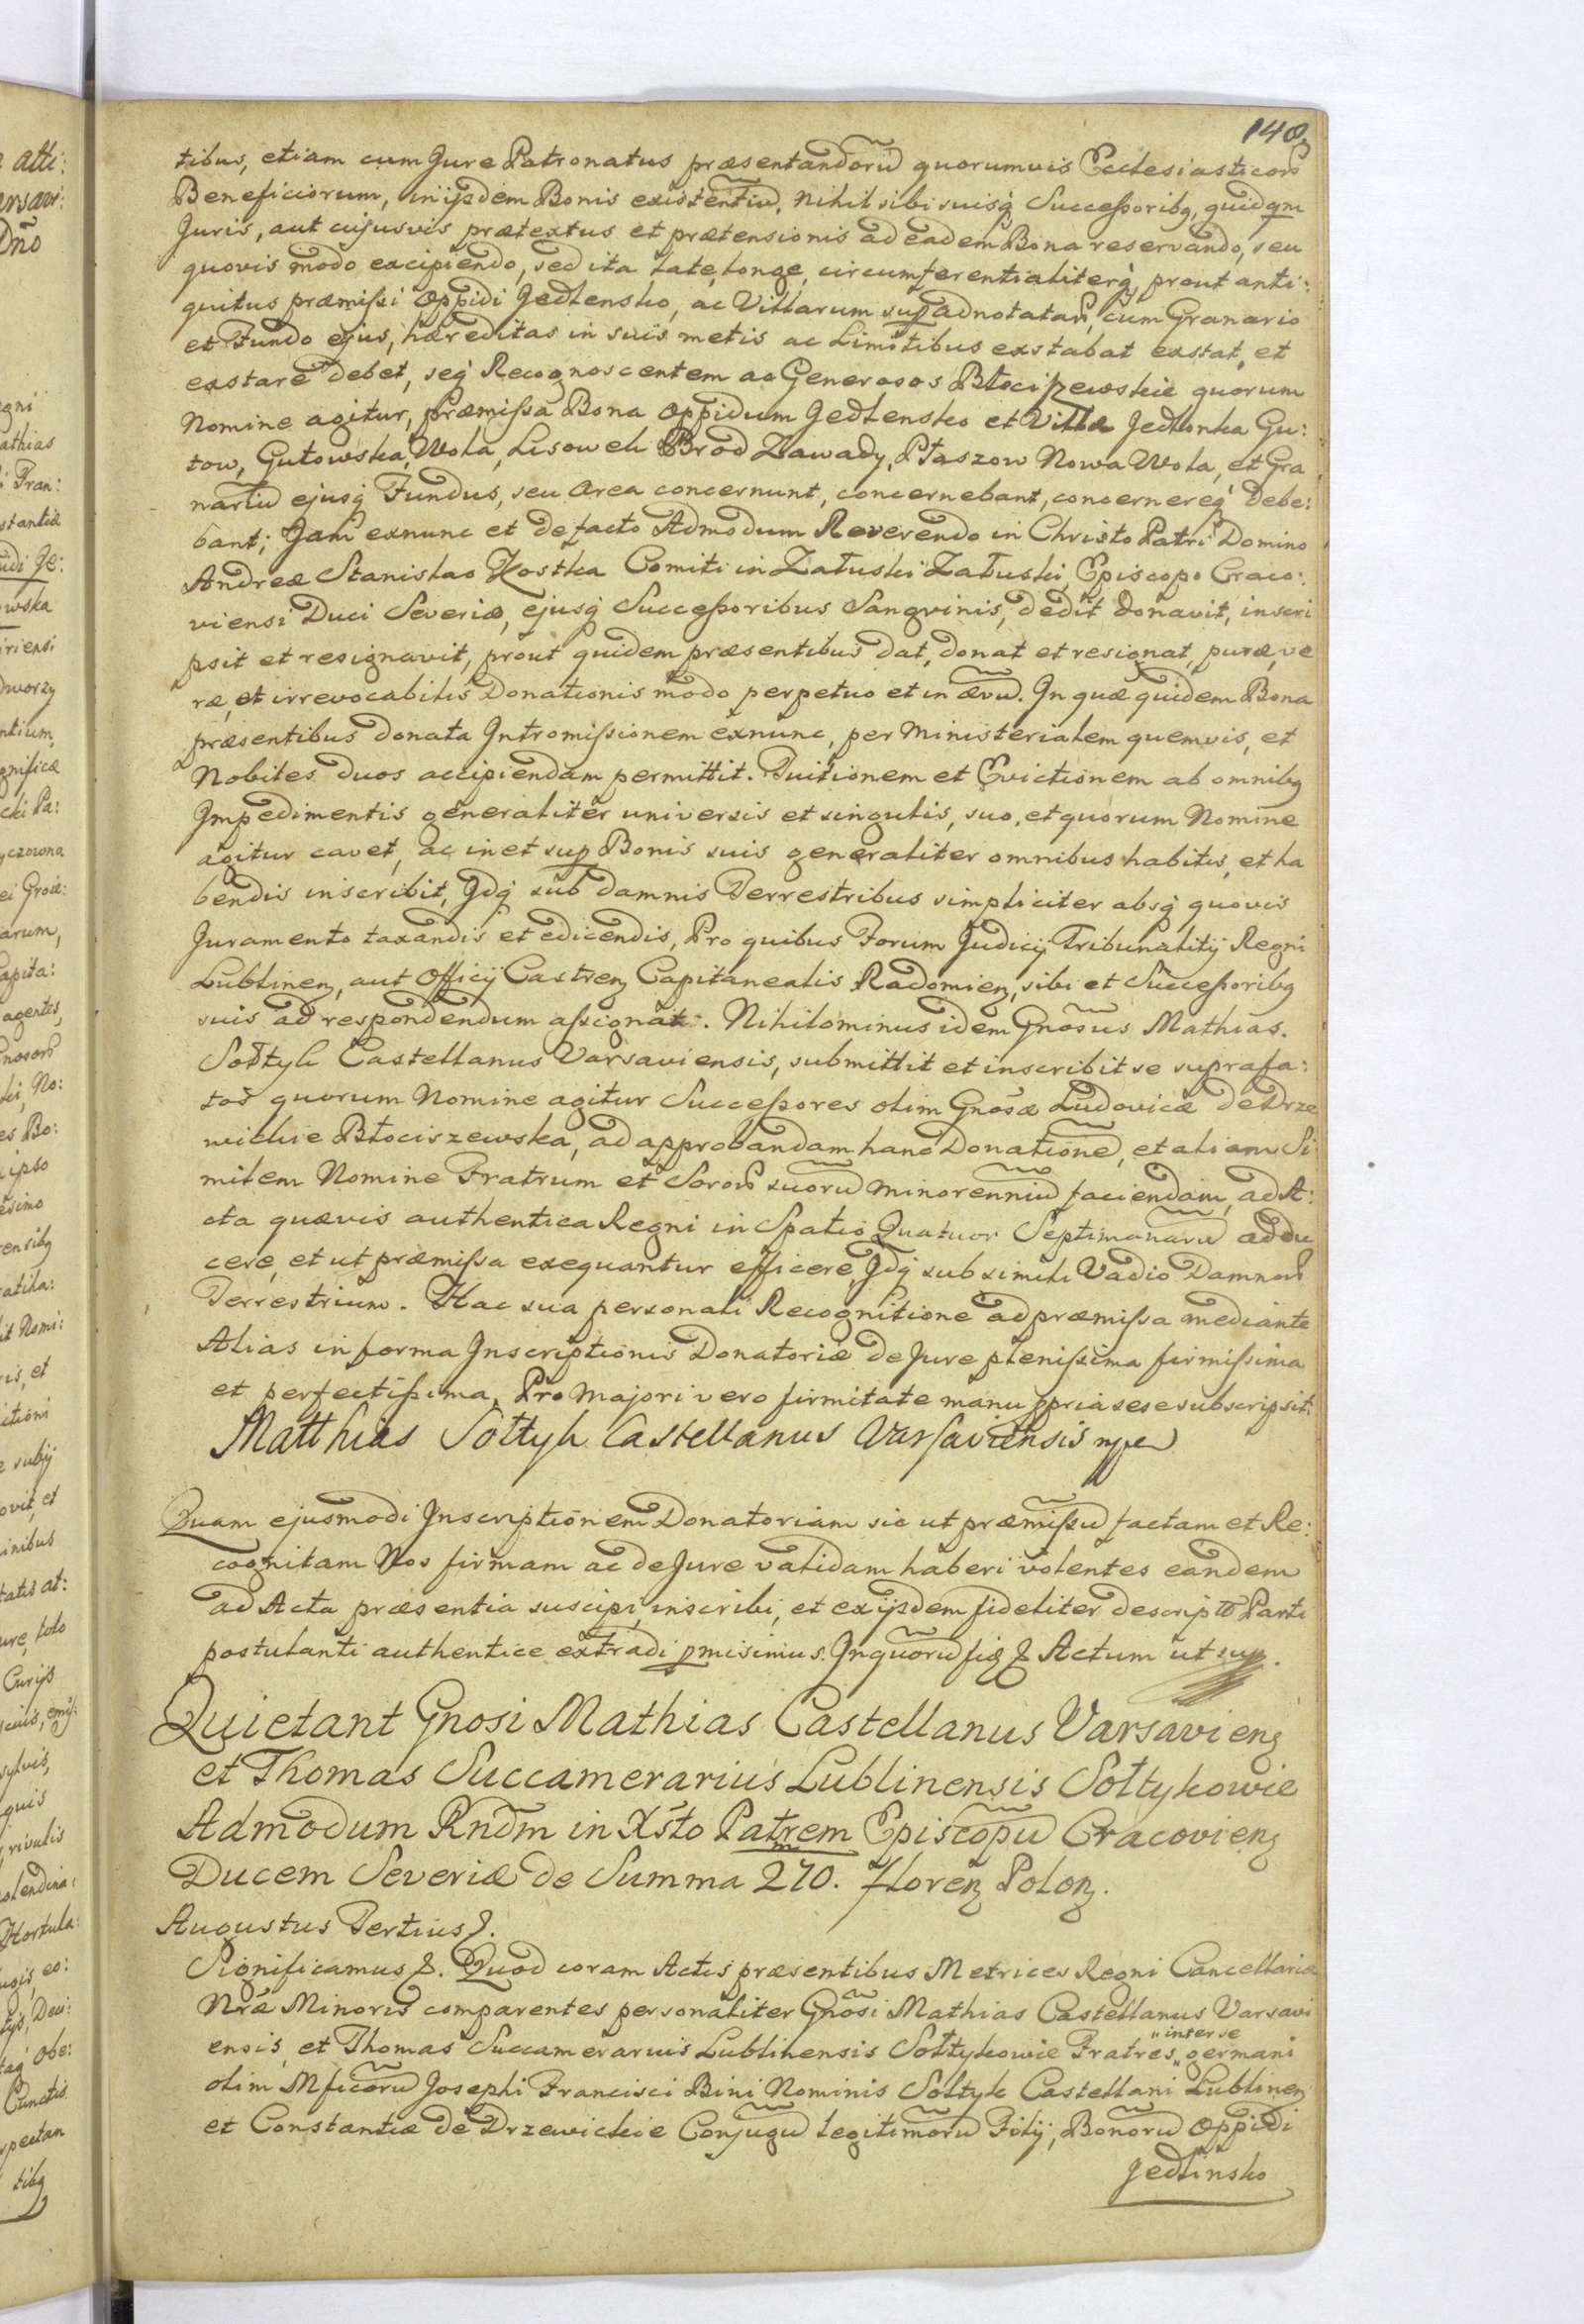 148.
tibus, etiam cum Jure Patronatus præsentandorũ quorumvis Ecclesiasticorũ
Beneficiorum, in ijsdem Bonis existentiũ. Nihil sibi suisq̃ Successoribq, quidqm
Juris, aut cujusvis prætextus et prætensionis ad eadem Bona reservando, seu
quovis modo excipiendo, sed ita late, longe, circumferentialiterq̃, prout anti:
quitus præmissi Oppidi Jedlensko, ac Villarum sup adnotatarũ, cum Granario
et Fundo ejus, hæreditas in suis metis ac Limitibus exstabat exstat, et
exstare debet, seq̃ Recognoscentem ac Generosos Błociszewskie quorum
Nomine agitur, præmissa Bona Oppidum Jedlensko et Villæ Jedlonka Gu:
tow, Gutowska, Wola, Lisowek Brod Zawady, Ptaszow Nowa Wola, et Gra
nariũ ejusq̃ Fundus, seu Area concernunt, concernebant, concernereq̃ debe:
bant; Jam exnunc et de facto Admodum Reverendo in Christo Patri Domino
Andreæ Stanislao Kostka Comiti in Załuski Załuski, Episcopo Craco:
viensi Duci Severiæ, ejusq̃ Successoribus Sangvinis, dedit donavit, inscri
psit et resignavit, prout quidem præsentibus dat, donat et resignat, puræ, ve
ræ, et irrevocabilis Donationis modo perpetuo et in ævũ. In quæ quidem Bona
præsentibus donata Intromissionem exnunc, per Ministerialem quemvis, et
Nobiles duos accipiendam permittit. Tuitionem et Evictionem ab omnibq
Impedimentis generaliter universis et singulis, suo, et quorum Nomine
agitur cavet, ac in et sup Bonis suis generaliter omnibus habitis, et ha
bendis inscribit, Idq̃ sub damnis Terrestribus simpliciter absq̃ quovis
Juramento taxandis et edicendis, Pro quibus Forum Judicij Tribunalitij Regni
Lublinen, aut Officij Castren Capitanealis Radomien, sibi et Successoribq
suis ad respondendum assignat. Nihilominus idem Gnõsus Mathias
Sołtyk Castellanus Varsaviensis, submittit et inscribit se suprafa:
tos quorum Nomine agitur Successores olim Gnõsæ Ludovicæ de Drze
wickie Błociszewska, ad approbandam hanc Donationẽ, et aliam Si
milem Nomine Fratrum et Sororũ suorũ minorenniũ faciendam, ad A:
cta quævis authentica Regni in Spatio Quatuor Septimanarũ addu
cere, et ut præmissa exequantur efficere, Idq̃ sub simili Vadio Damnorũ
Terrestrium. Hac sua personali Recognitione ad præmissa mediante
Alias in forma Inscriptionis Donatoriæ de Jure plenissima firmissima
et perfectissima. Pro Majori vero firmitate manu ppria sese subscripsit.
Matthias Sołtyk Castellanus Varsaviensis mpp
Quam ejusmodi Inscriptionem Donatoriam sic ut præmissũ factam et Re:
cognitam Nos firmam ac de Jure validam haberi volentes eandem
ad Acta præsentia suscipi, inscribi, et ex ijsdem fideliter descriptã Parti
postulanti authentice extradi pmisimus. In quorũ fiď & Actum ut sup.
Quietant Gnosi Mathias Castellanus Varsavien
et Thomas Succamerarius Lublinensis Sołtykowie
Admodum Rndm in Xsto Patrem Episcopũ Cracovien
Ducem Severiæ de Summa 270. m Floren Polon.
Augustus Tertius &.
Significamus &. Quod coram Actis præsentibus Metrices Regni Cancellariæ
Nræ Minoris comparentes personaliter Gnõsi Mathias Castellanus Varsavi
ensis, et Thomas Succamerarius Lublinensis Sołtykowie Fratres "inter se" germani
olim Mficorũ Josephi Francisci Bini Nominis Sołtyk Castellani Lublinen
et Constantiæ de Drzewickie Conjugũ legitimorũ Filij, Bonorũ Oppidi
Jedlinsko